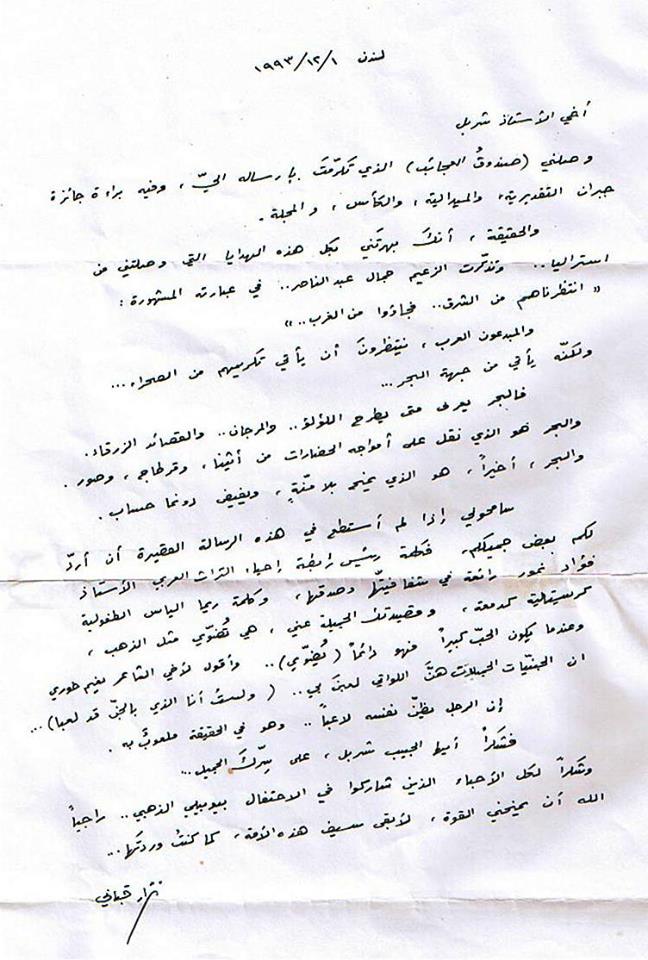 لندن ١/١٢/١٩٩٣
أخي الأستاذ شربل
وصلني (صندوقُ العجائب) الذي تكرّمتَ بإرساله إليّ، وفيه براءة جائزة
جبران التقديرية، والميدالية، والكأس، والمجلة.
والحقيقة، أنكَ بهرتَني بكل هذه الهدايا التي وصلتني من
استراليا.. وتذكّرت الزعيم جمال عبد الناصر.. في عبارته المشهورة:
"انتظرناهم من الشرق.. فجاؤوا من الغرب.."
والمبدعون العرب، ينتظرونَ أن يأتي تكريمهم من الصحراء...
ولكنّه يأتي من جهة البحر...
فالبحر يعرف متى يطرح اللؤلؤ.. والمرجان.. والقصائد الزرقاء.
والبحر هو الذي نقل على أمواجه الحضارات من أثينا، وقرطاج، وصور.
والبحر، أخيراً، هو الذي يمنح بلا منّةٍ، ويفيض دونما حساب.
سامحوني إذا لم أستطع في هذه الرسالة القصيرة أن أردّ
لكم بعض جميلكم. فكلمة رئيس رابطة إحياء التراث العربي الأستاذ
فؤاد نمور رائعة في شفافيتها وصدقها، وكلمة ريما الياس الطفولية
كريستالية كدمعة، وقصيدتك الجميلة عني، هي تُضوّي مثل الذهب،
وعندما يكون الحبّ كبيراً فهو دائماً (تُضوّي).. وأقول لأخي الشاعر نعيم خوري
ان الجنيّات الجميلات هنَّ اللواتي لعبنَ بي.. (ولستُ أنا الذي بالجنّ قد لعبا)...
إن الرجل يظنّ نفسه لاعباً.. وهو في الحقيقة ملعوبٌ به.
فشكراً أيها الحبيب شربل، على سِرّكَ الجميل...
وشكراً لكل الأحباء الذين شاركوا في الاحتفال بيوبيلي الذهبي.. راجياً
الله أن يمنحني القوة، لأبقى سيف هذه الأمة، كما كنتُ وردتَها...
نزار قباني